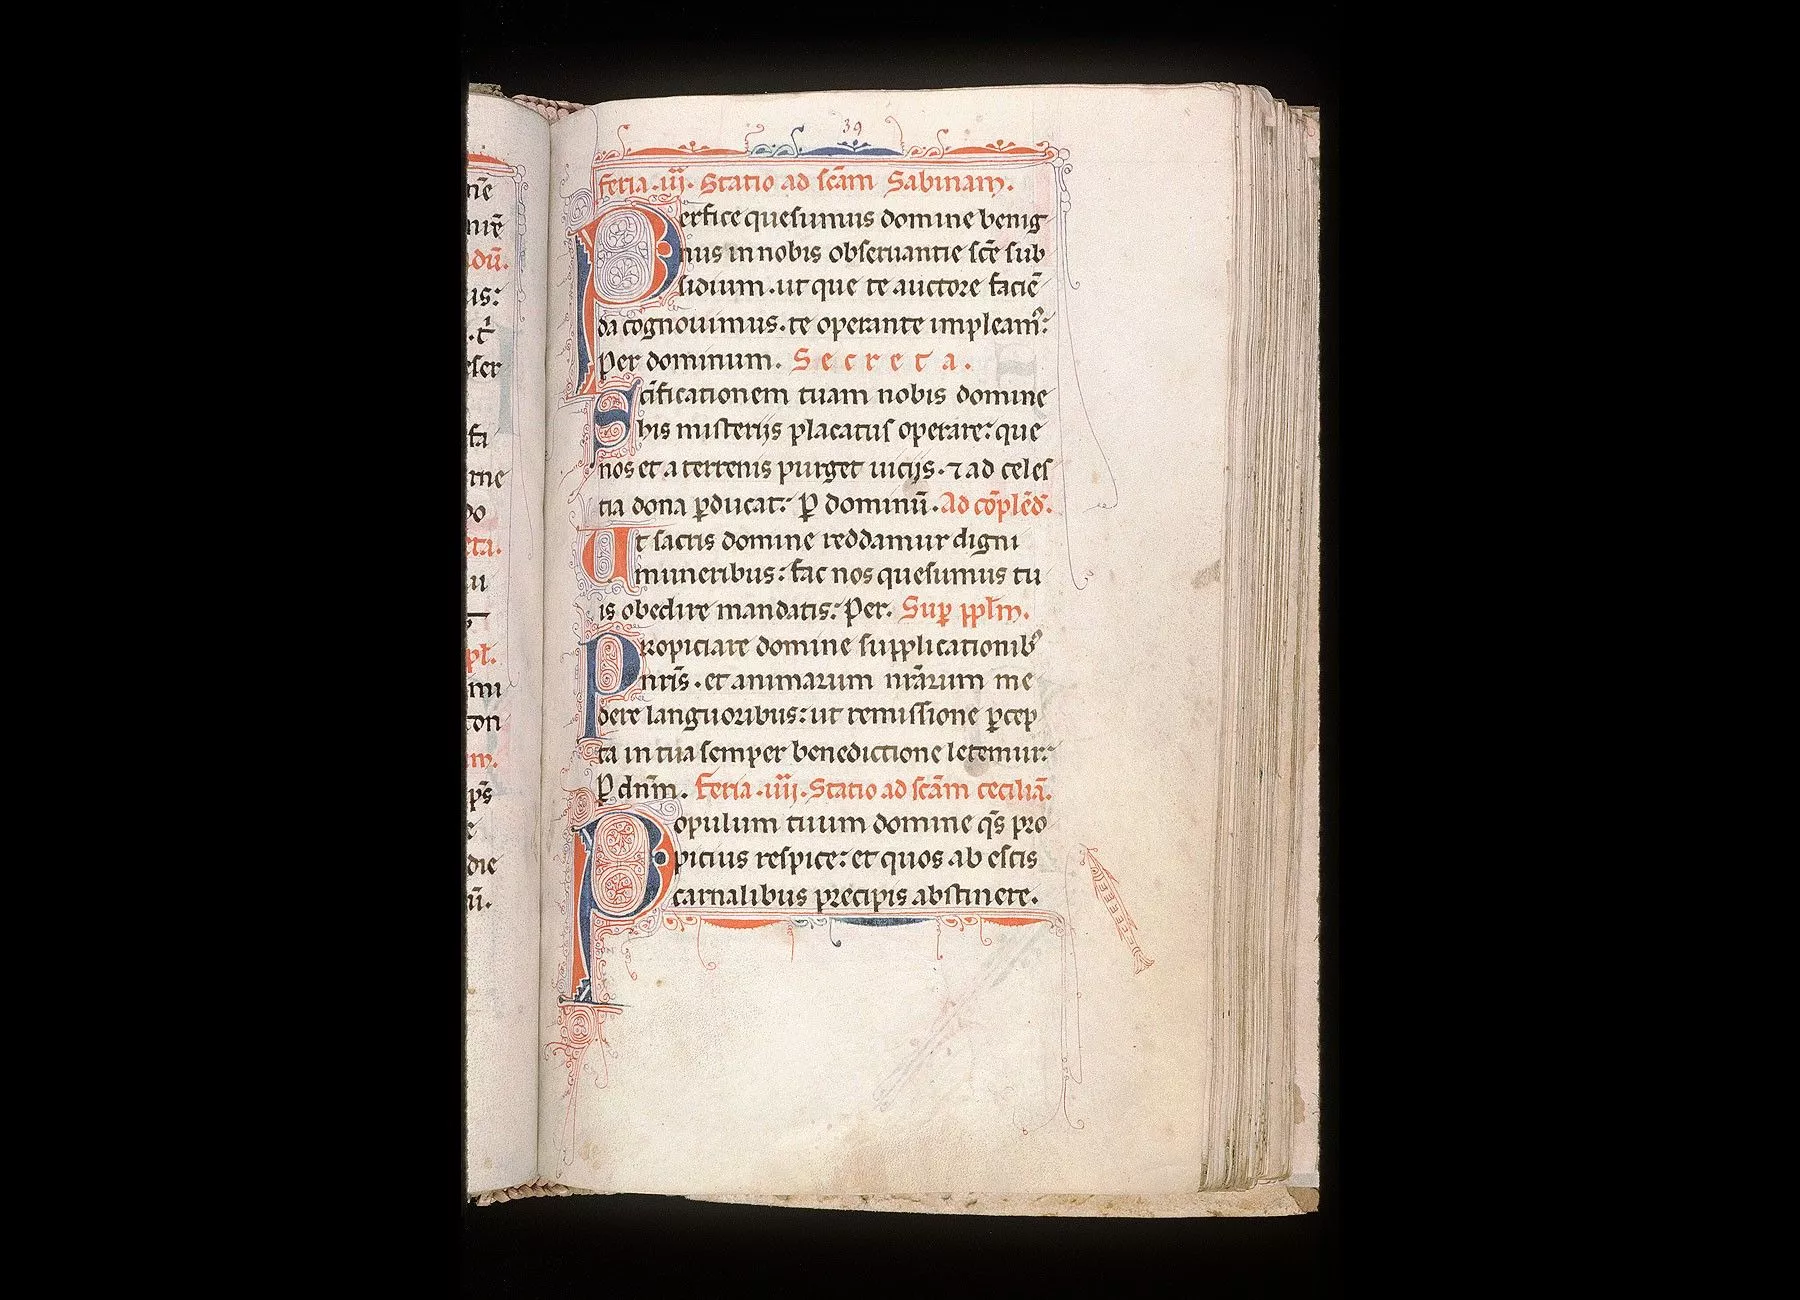 39
feria .iii. Statio ad scãm Sabinam.
Perfice quesumus domine benig
nus in nobis obseruantie scẽ sub
sidium . ut que te auctore faciẽ
da cognouimus . te operante impleamꝰ:
Per dominum. Secreta.
Scĩficationem tuam nobis domine
his misterijs placatus operare: que
nos et a terrenis purget uicijs . ⁊ ad celes
tia dona ꝑducat: P dominũ . Ad cõplẽd.
Ut sacris domine reddamur digni
muneribus: fac nos quesumus tu
is obedire mandatis: Per. Suꝑ pplm̃.
Propiciare domine supplicationibꝰ
nr̃is . et animarum nr̃arum me
dere languoribus: ut remissione ꝑcep
ta in tua semper benedictione letemur:
P dnm̃. feria .iiii. Statio ad scãm ceciliã.
Populum tuum domine qs̃ pro
picius respice: et quos ab escis
carnalibus precipis abstinere.